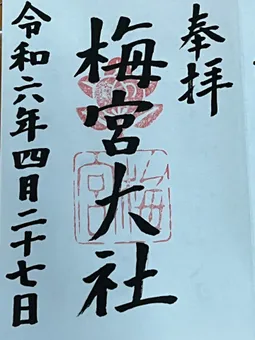 奉拝
梅宮大社
梅宮
令和六年四月二十七日